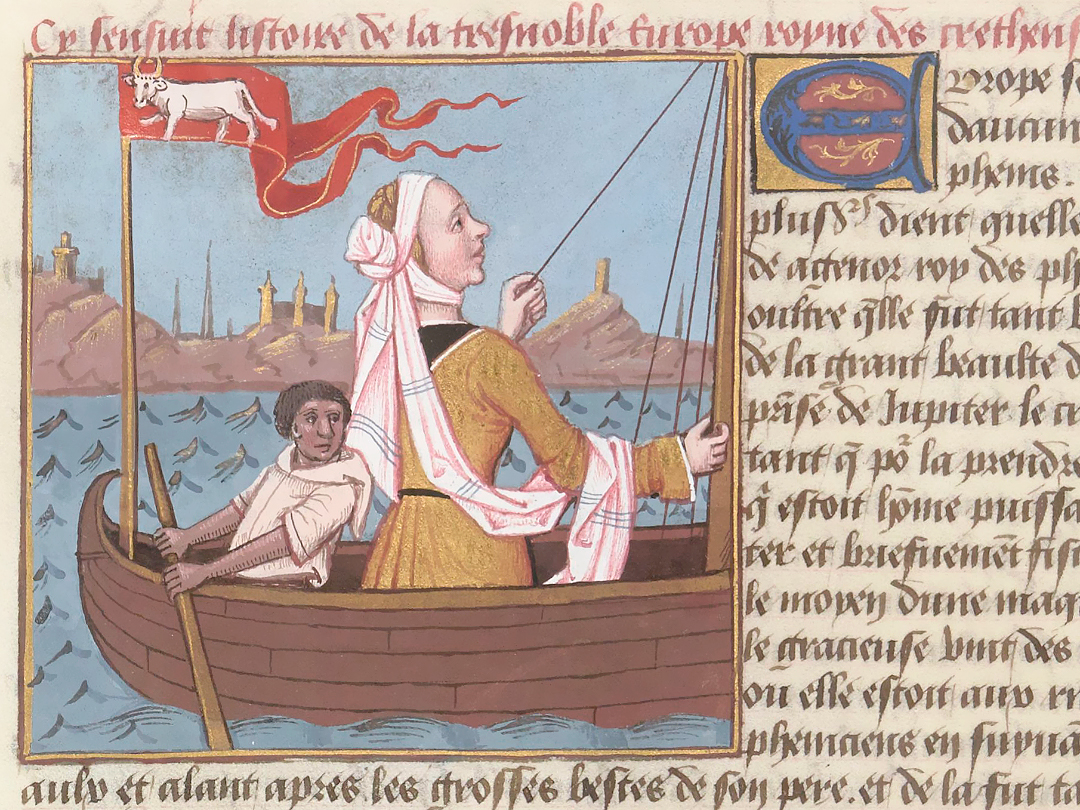 Cy sensuit listoire de la tresnoble Europe royne des crethens
Europe se
daucun
phenis.
plus⁹rs dient quelle
de agenor roy des ph
oultre q̃lle fut tant b
de la grant beaulte d
prise de Jupiter le cr
tant q̃ põ la prendre
q̃ estoit hõme puissa
ter et briefuemẽt fist
le moyen dune maq
le gracieuse vint des
ou elle estoit auv ri
pheniciens en suyuã
aulx et alant apres les grosses bestes de son pere. et de la fut ta